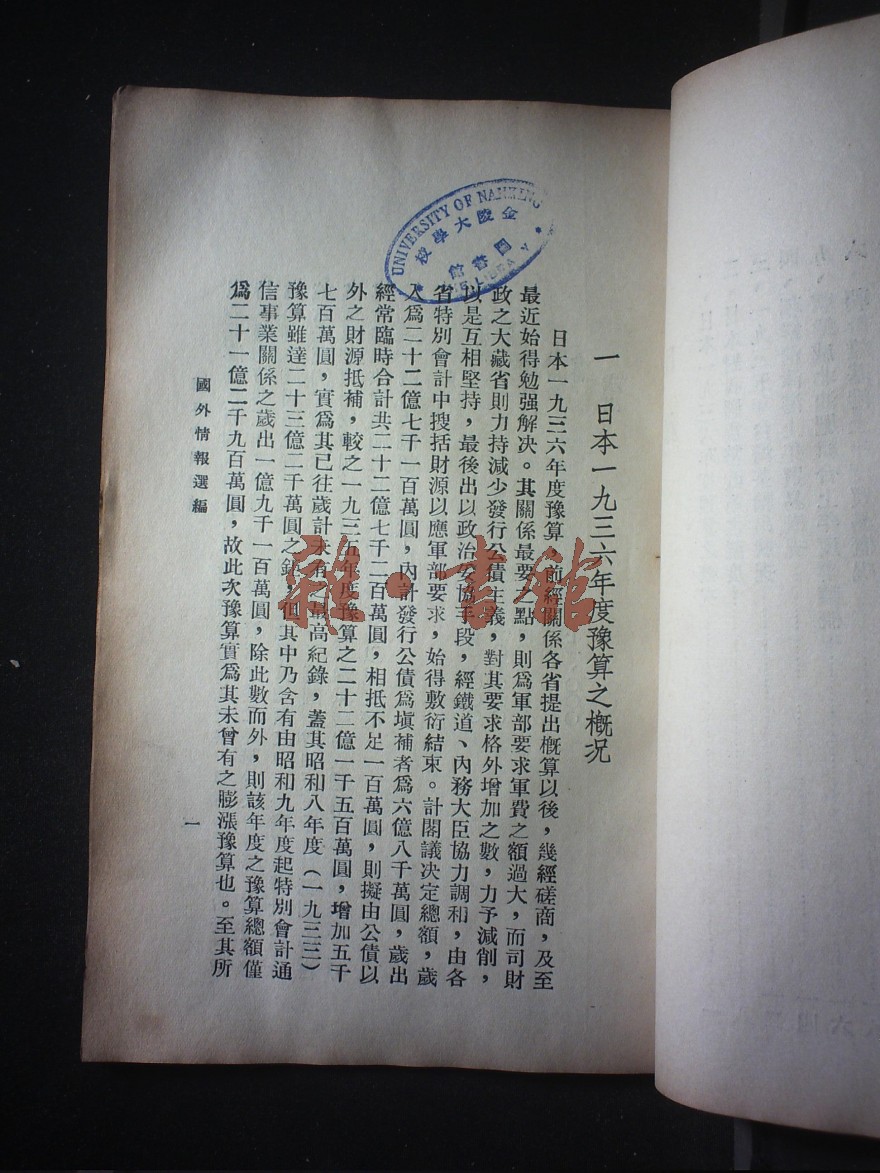 一 日本一九三六年度豫算之槪况
日本一九三六年度豫算，前經關係各省提出槪算以後，幾經磋商，及至
最近始得勉强解决。其關係最要一點，則爲軍部要求軍費之額過大，而司財
政之大藏省則力持減少發行公債主義，對其要求格外增加之數，力予減削，
以是互相堅持，最後出以政治妥協手段，經鐵道、內務大臣協力調和，由各
省特別會計中搜括財源以應軍部要求，始得敷衍結束。計閣議决定總額，歲
入爲二十二億七千一百萬圓，內計發行公債爲塡補者爲六億八千萬圓，歲出
經常臨時合計共二十二億七千二百萬圓，相抵不足一百萬圓，則擬由公債以
外之財源抵補，較之一九三五年度豫算之二十二億一千五百萬圓，增加五千
七百萬圓，實爲其已往歲計未有之最高紀錄，蓋其昭和八年度（一九三三）
豫算雖達二十三億二千萬圓之鉅，但其中乃含有由昭和九年度起特別會計通
信事業關係之歲出一億九千一百萬圓，除此數而外，則該年度之豫算總額僅
爲二十一億二千九百萬圓，故此次豫算實爲其未曾有之膨漲豫算也。至其所
國外情報選編
一
UNIVERSITY OF NANKING
金陵大學校
圖書館
LIBRARY
雜·書館